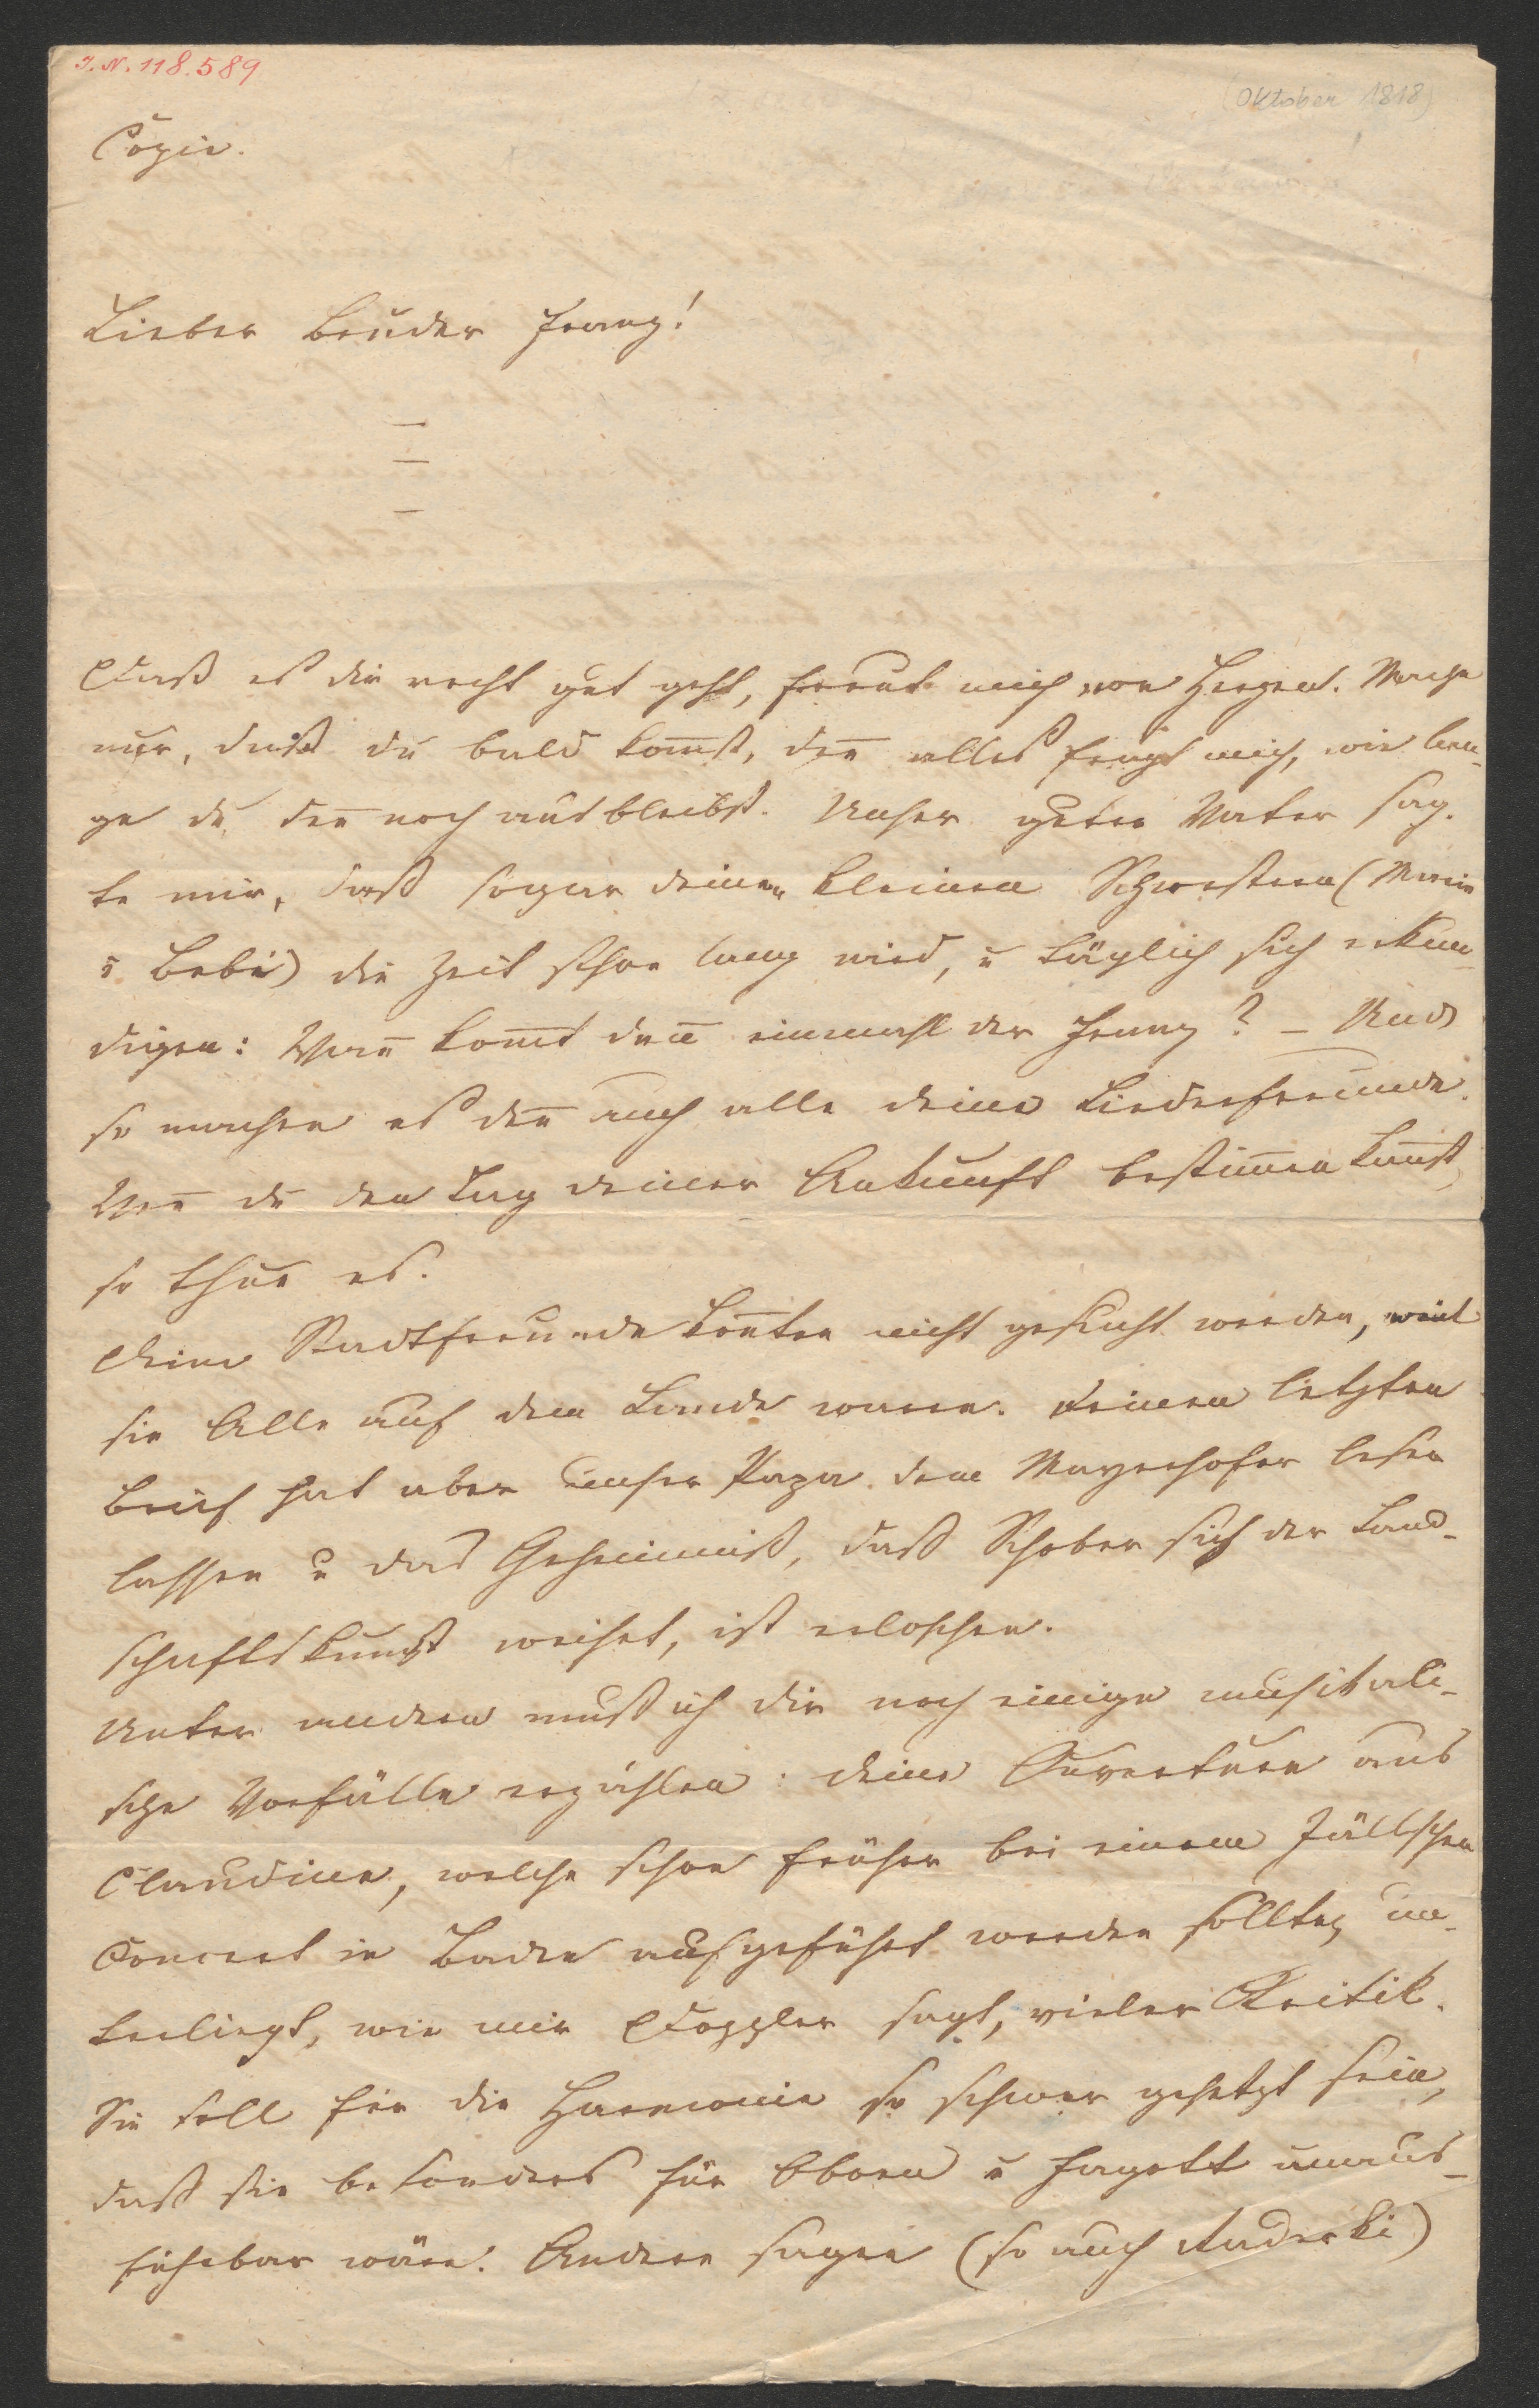 I. N. 118.589
(Oktober 1818)
Copie.
Lieber Bruder Franz!
Daß es dir recht gut geht, freut mich von Herzen. Mache
nur, daß du bald kom̄st, den̄ alles frägt mich, wie lan-
ge du den̄ noch ausbleibst. Unser guter Vater sag-
te mir, daß sogar deinen kleinen Schwestern (Marie
u Bebi) die Zeit schon lang wird, u täglich sich erkun-
digen: Wan̄ kom̄t den̄ einmahl der Franz? – Und
so machen es den̄ auch alle deine Liederfreunde.
Wen̄ du den Tag deiner Ankunft bestim̄en kan̄st,
so thue es.
Deine Stadtfreunde kon̄ten nicht gesucht werden, weil
sie Alle auf dem Lande waren. Deinen letzten
Brief hat aber unser Papa dem Mayerhofer lesen
lassen u das Geheimniß, daß Schober sich der Land-
schaftskunst weihet, ist erloschen.
Unter andern muß ich dir noch einige musikali-
sche Vorfälle erzählen: deine Ouverture aus
Claudine, welche schon früher bei einem Jällschen
Concert in Baden aufgeführt werden sollte, un-
terliegt, wie mir Doppler sagt, vieler Kritik.
Sie soll für die Harmonie so schwer gesetzt sein,
daß sie besonders für Oboen u Fagott unaus-
führbar wäre. Andere sagen (so auch Radecki)